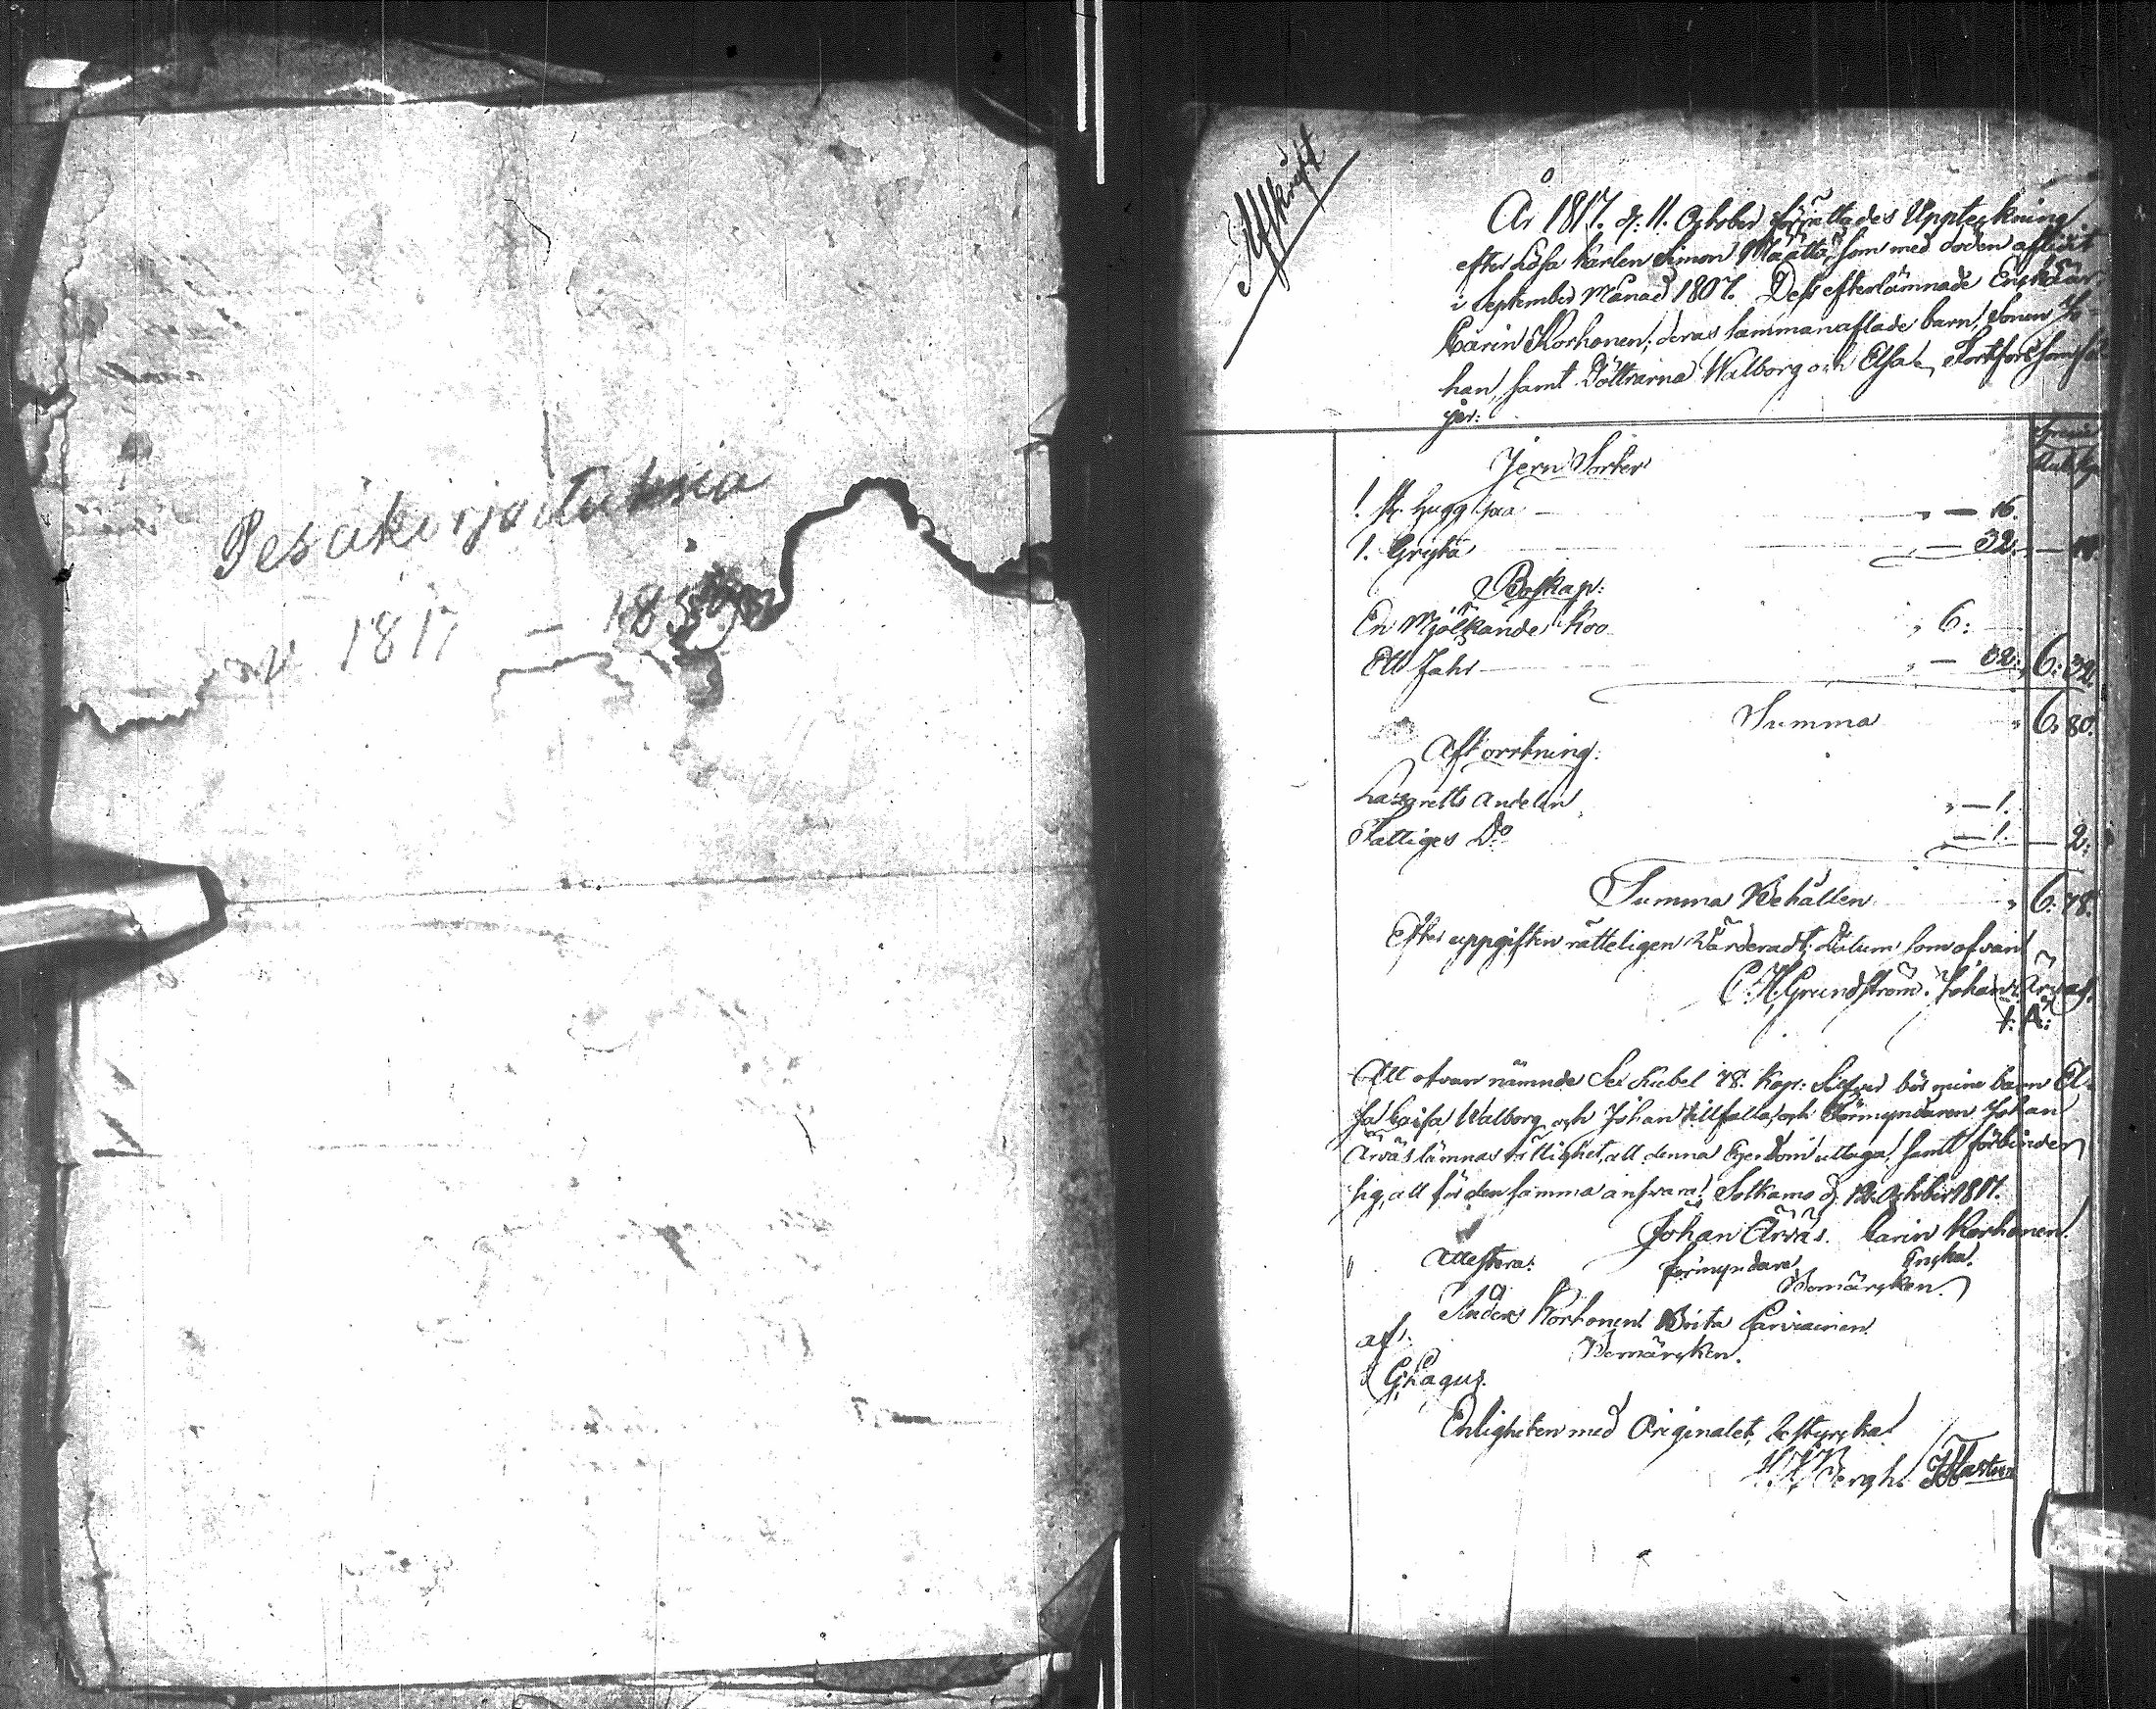 Pesäkirjoituksia
v. 1817 — 185
Afskrift
År 1817. d: 11. October förrättades Uppteckning
efter Lösa karlen Simon Määttä, som med döden aflidit
i September Månad 1807. Dess efterlämnade Enka är
Carin Korhonen; deras sammanaflade barn, Sonen Jo-
han, samt Döttrarna Walborg och Elsa
jer:
Jern Sorter
1. st. hugg — 16.
1. Gryta — 32. —
Boskap:
En Mjölkande Koo 6:
Ett Fahr — 32. 6: 32.
Summa 6: 80.
Afkortning:
Lazaretts andelen — 1.
Fattiges D:o — 1. — 2:
Summa Behållen 6: 78.
Efter uppgiften rätteligen Värderadt; Datum som ofvan
C. H. Grundström. Johan Ärväs.
t: A:
Att ofvan nämnde Sex Rubel 78. Kop: Silfver bör mine barn El-
sa Caisa Walborg och Johan tillfalla, och Förmyndaren Johan
Ärväs lämnas rättighet, att denna Egendom uttaga, samt förbinder
sig, att för den samma ansvara. Sotkamo d. 12. October 1817.
Johan Ärväs. Carin Korhonen.
Attestera: förmyndare Enka.
Bomärcken.
Anders Korhonen Brita Parviainen.
af: Bomärcken.
G. Lagus.
Enligheten med Originalet, bestyrcka
Bergh.